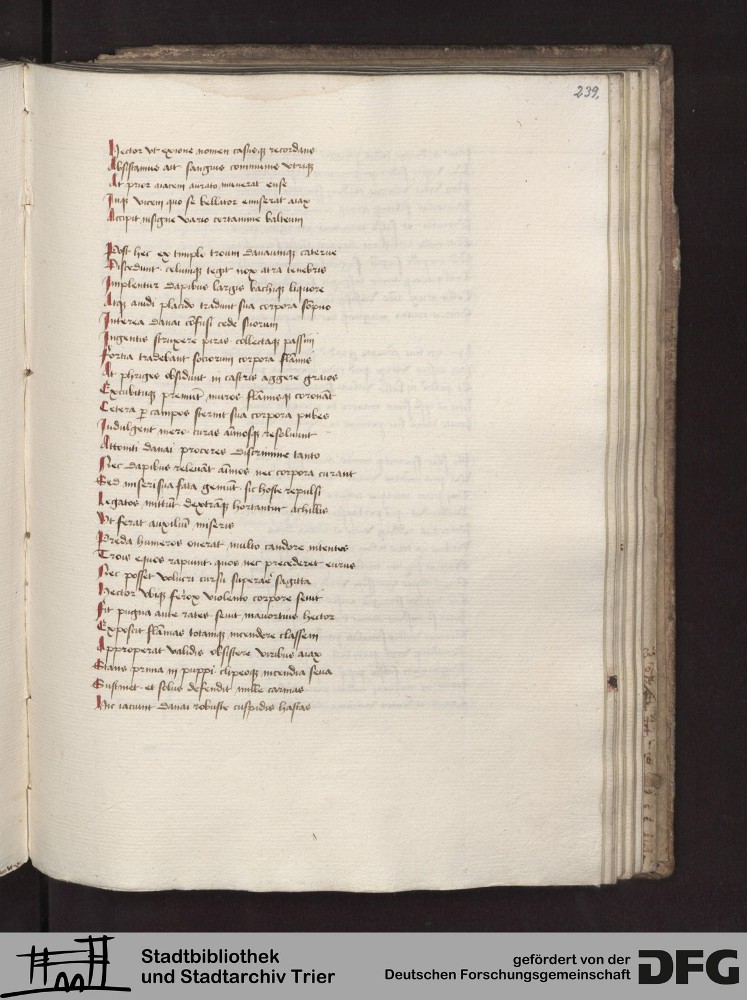 239,
Hector vt exione nomen casusq; recordans
Absistamus ait sanguis communis vtriq;
At prior aiacem aurato munerat ense
Inq; vicem quo se bellator emiserat aiax
Accipit insigne vario certamine balteum
Post hec extimplo troum danaumq; caterue
Discedunt celumq; tegit nox atra tenebris
Implentur dapibus largis bachiq; liquore
Atq; auidi placido tradunt sua corpora sõpno
Interea danai cõfusi cede suorum
Ingentis struxere piras collectaq; passim
fortia tradebant sociorum corpora flãmis
At phriges obsidunt in castris aggere graios
Excubitusq; premunt muros flãmisq; coronãt
Cetera p campos sternit sua corpora pubes
Indulgent mero curas aĩmosq; resoluunt
Attoniti danai proceres discrimine tanto
Nec dapibus releuãt aĩmos nec corpora curant
Sed miseri sua fata gemũt sic hoste repulsi
Legatos mittũt dextrãq; hortantur achillis
Vt ferat auxiliũ miseris
Preda humeros onerat multo candore nitentes
Trois equos rapiunt quos nec precederet eurus
Nec posset volucri cursu superare sagitta
Hector vbiq; ferox violento corpore seuit
fit pugna ante rates seuit mauortius hector
Exposcit flãmas totamq; incendere classem
Approperat validis obsistere viribus aiax
Stans prima in puppi clipeoq; incendia seua
Sustinet et solus defendit mille carinas
Hic iaciunt danai robuste cuspidis hastas
Stadtbibliothek
und Stadtarchiv Trier
gefördert von der
Deutschen Forschungsgemeinschaft
DFG